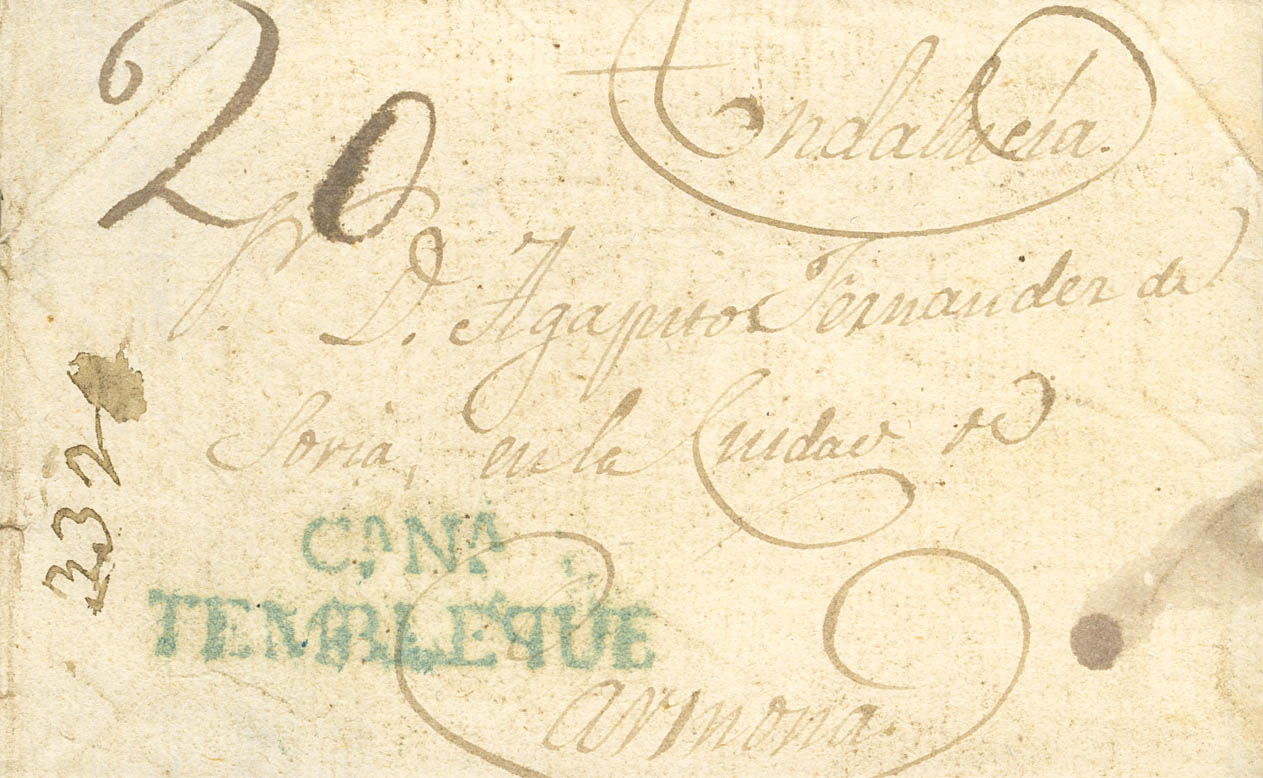 20
Andalucía.
Sr. D. Agapito Fernandez de
Soria, en la Ciudad de
CANA
TEMBLEQUE
Carmona.
332